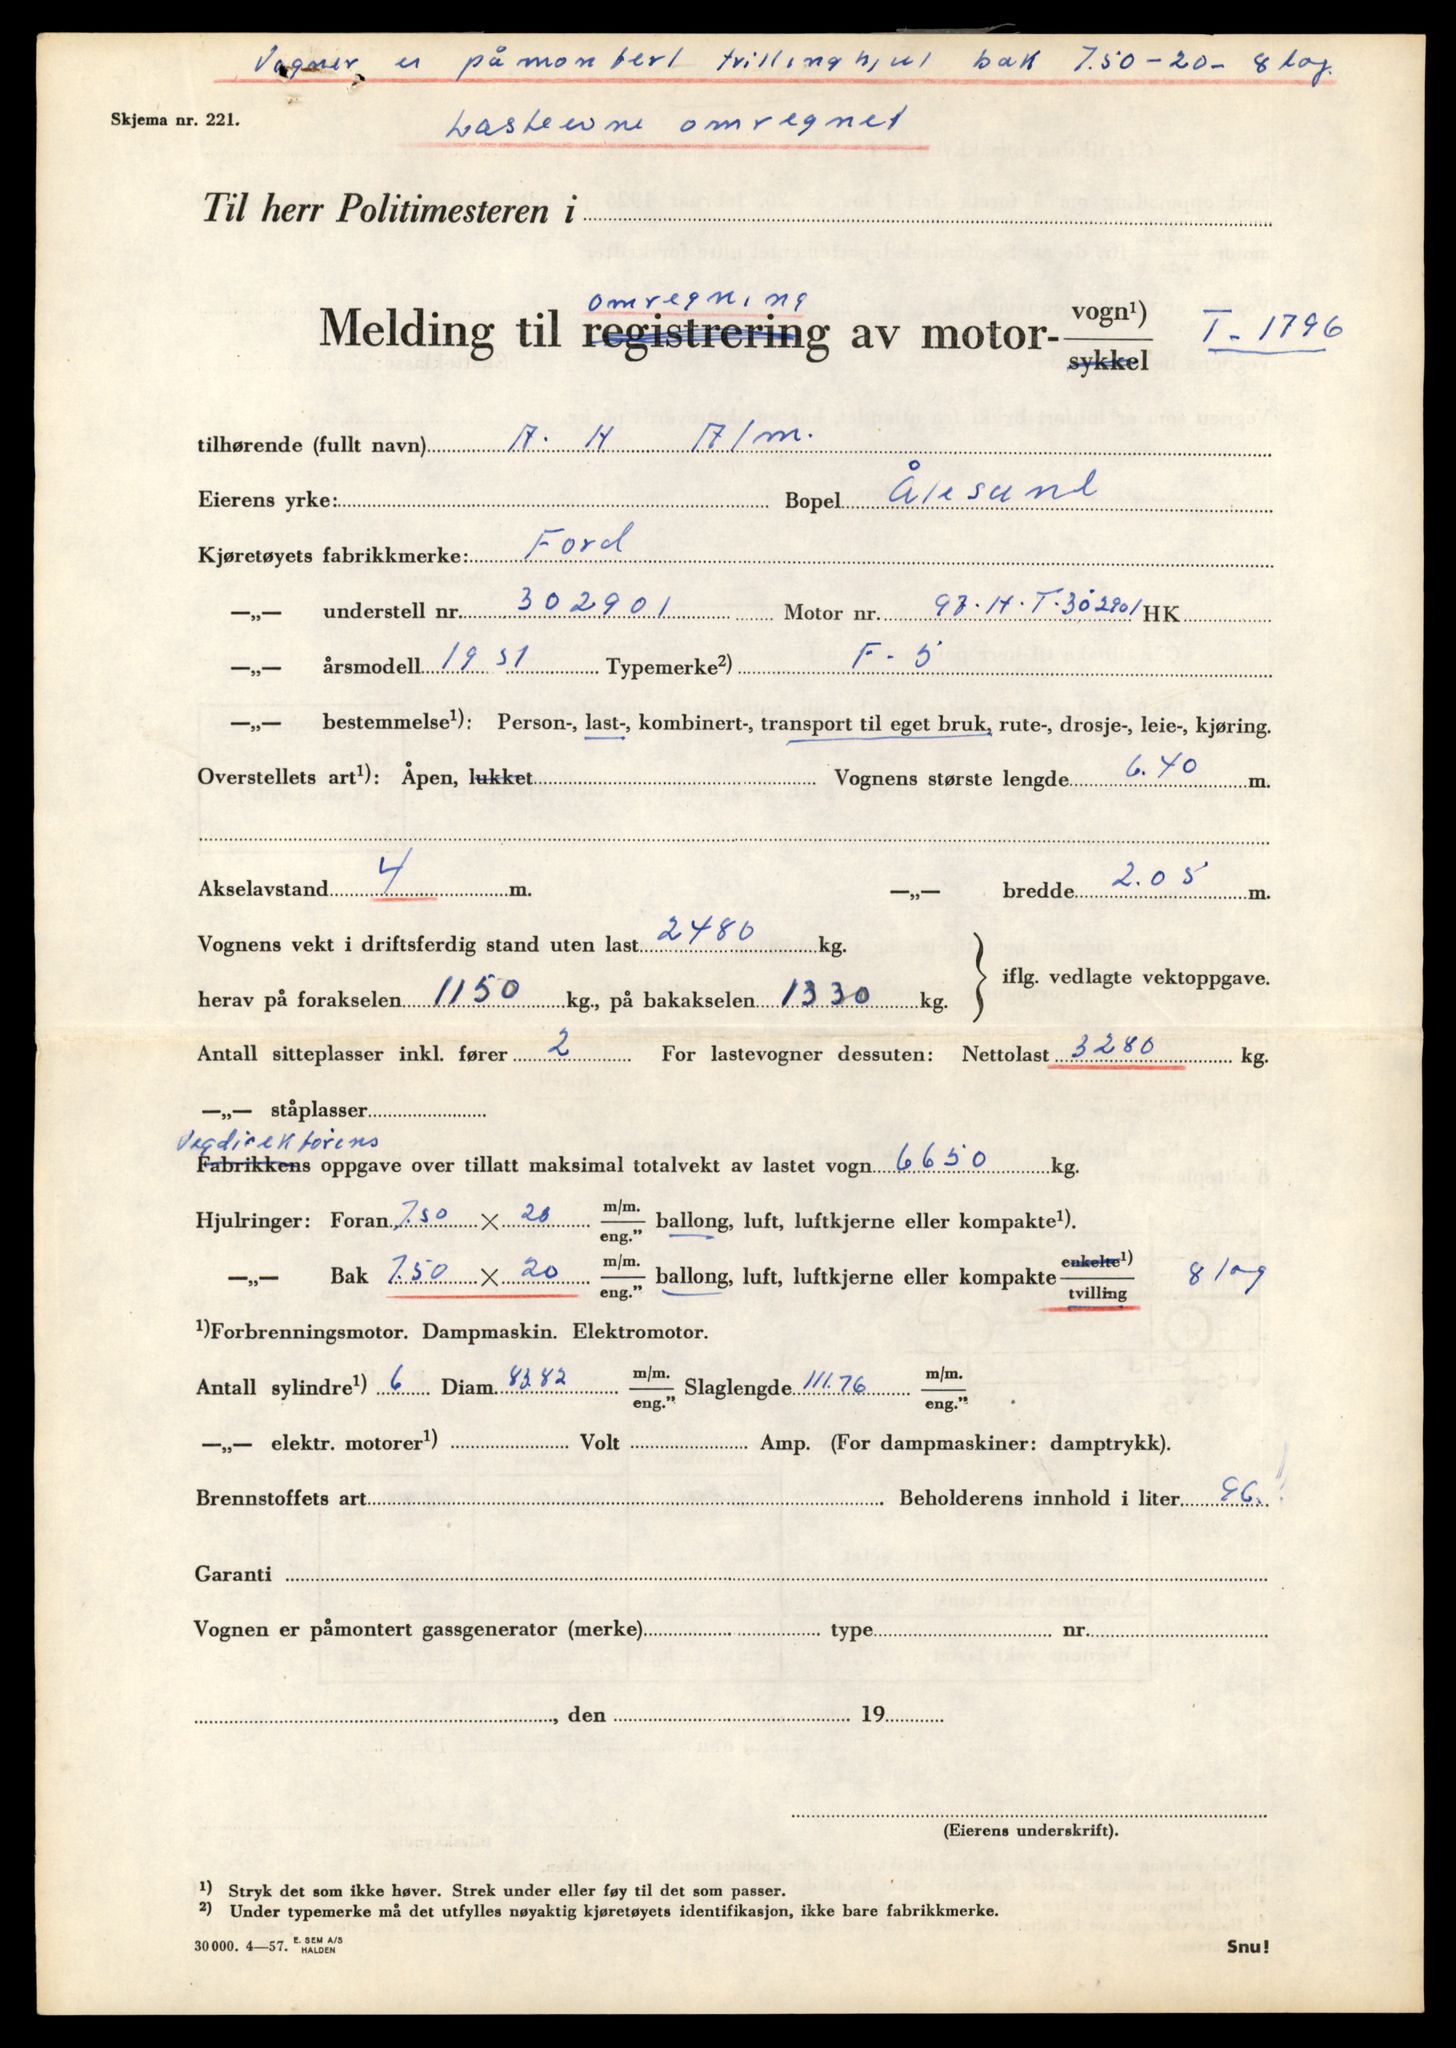 Vognen er påmontert tvillinghjul bak 7.50-20- 8 lag.
Skjema nr. 221.
Lasteevne omregnet
Til herr Politimesteren i
omregning
Melding til registrering av motor- vogn¹) / sykkel T-1796
tilhørende (fullt navn) A. H Alm.
Eierens yrke: Bopel Ålesund
Kjøretøyets fabrikkmerke: Ford
—„— understell nr. 302901 Motor nr. 97.H.T.302901 HK
—„— årsmodell 1951 Typemerke²) F-5
—„— bestemmelse¹): Person-, last-, kombinert-, transport til eget bruk, rute-, drosje-, leie-, kjøring.
Overstellets art¹): Åpen, lukket Vognens største lengde 6.40 m.
Akselavstand 4 m. —„— bredde 2.05 m.
Vognens vekt i driftsferdig stand uten last 2480 kg.
herav på forakselen 1150 kg., på bakakselen 1330 kg. } iflg. vedlagte vektoppgave.
Antall sitteplasser inkl. fører 2 For lastevogner dessuten: Nettolast 3280 kg.
—„— ståplasser
Vegdirektørens
Fabrikkens oppgave over tillatt maksimal totalvekt av lastet vogn 6650 kg.
Hjulringer: Foran 7.50 × 20 m/m. / eng." ballong, luft, luftkjerne eller kompakte¹).
—„— Bak 7.50 × 20 m/m. / eng." ballong, luft, luftkjerne eller kompakte enkelte¹) / tvilling 8 lag
¹)Forbrenningsmotor. Dampmaskin. Elektromotor.
Antall sylindre¹) 6 Diam. 83.82 m/m. / eng." Slaglengde 111.76 m/m. / eng."
—„— elektr. motorer¹) Volt Amp. (For dampmaskiner: damptrykk).
Brennstoffets art Beholderens innhold i liter 96.
Garanti
Vognen er påmontert gassgenerator (merke) type nr.
, den 19
(Eierens underskrift).
¹) Stryk det som ikke høver. Strek under eller føy til det som passer.
²) Under typemerke må det utfylles nøyaktig kjøretøyets identifikasjon, ikke bare fabrikkmerke.
30 000. 4—57. E. SEM A/S HALDEN Snu!